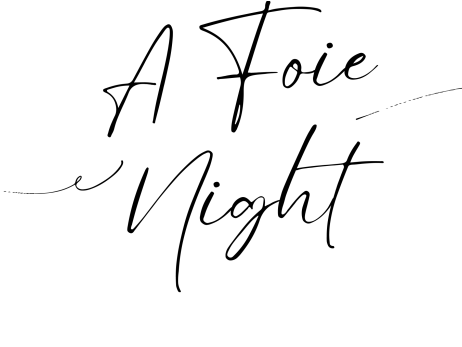 A Foie
Night